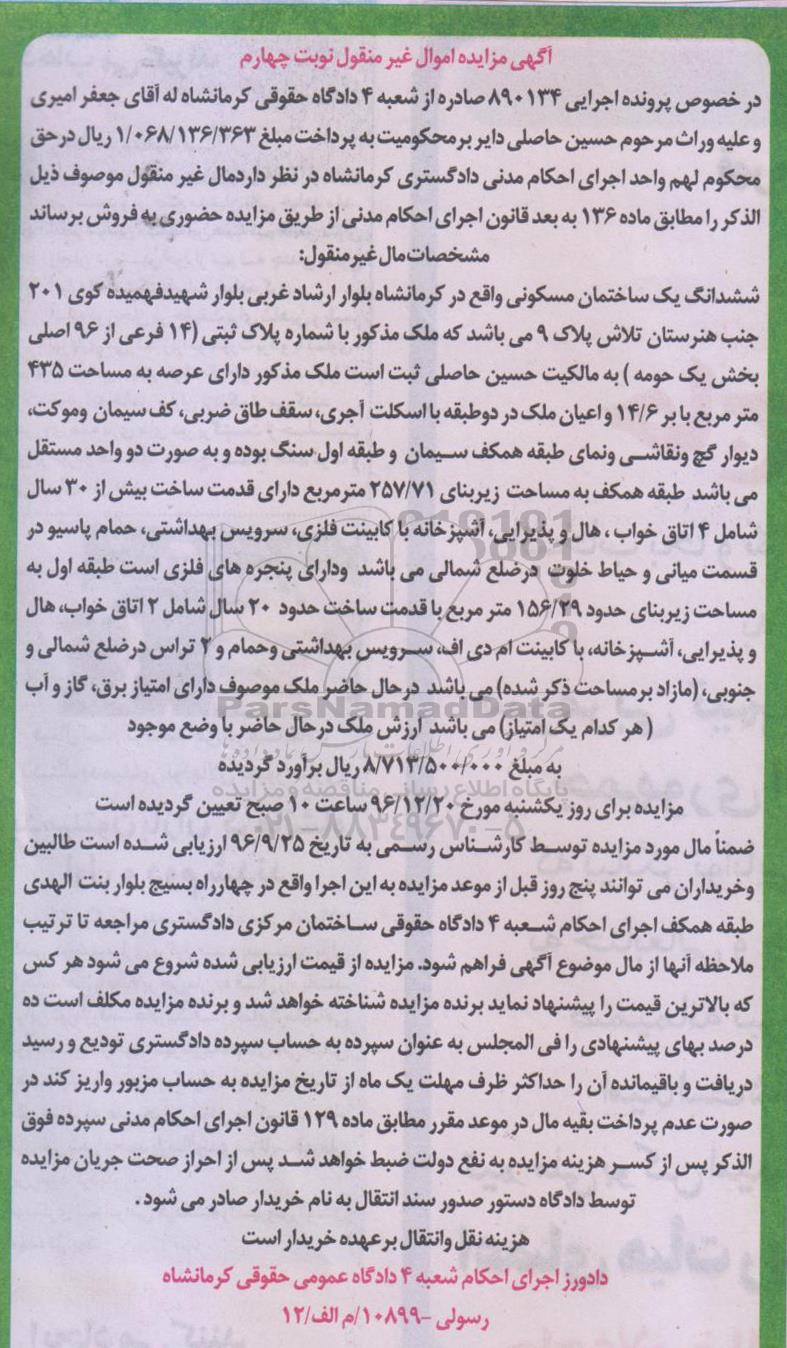 آگهی مزایده اموال غیر منقول نوبت چهارم
در خصوص پرونده اجرایی ۸۹۰۱۳۴ صادره از شعبه ۴ دادگاه حقوقی کرمانشاه له آقای جعفر امیری
و علیه وراث مرحوم حسین حاصلی دایر بر محکومیت به پرداخت مبلغ ۱/۰۶۸/۱۳۶/۳۶۳ ریال در حق
محکوم لهم واحد اجرای احکام مدنی دادگستری کرمانشاه در نظر داردمال غیر منقول موصوف ذیل
الذکر را مطابق ماده ۱۳۶ به بعد قانون اجرای احکام مدنی از طریق مزایده حضوری به فروش برساند
مشخصات مال غیر منقول:
ششدانگ یک ساختمان مسکونی واقع در کرمانشاه بلوار ارشاد غربی بلوار شهیدفهمیده کوی ۲۰۱
جنب هنرستان تلاش پلاک ۹ می باشد که ملک مذکور با شماره پلاک ثبتی (۱۴ فرعی از ۹۶ اصلی
بخش یک حومه ) به مالکیت حسین حاصلی ثبت است ملک مذکور دارای عرصه به مساحت ۴۳۵
متر مربع با بر ۱۴/۶ و اعیان ملک در دوطبقه با اسکلت آجری، سقف طاق ضربی، کف سیمان وموکت،
دیوار گچ ونقاشی ونمای طبقه همکف سیمان و طبقه اول سنگ بوده و به صورت دو واحد مستقل
می باشد طبقه همکف به مساحت زیربنای ۲۵۷/۷۱ مترمربع دارای قدمت ساخت بیش از ۳۰ سال
شامل ۴ اتاق خواب ، هال و پذیرایی، آشپزخانه با کابینت فلزی، سرویس بهداشتی، حمام پاسیو در
قسمت میانی و حیاط خلوت درضلع شمالی می باشد ودارای پنجره های فلزی است طبقه اول به
مساحت زیربنای حدود ۱۵۶/۲۹ متر مربع با قدمت ساخت حدود ۲۰ سال شامل ۲ اتاق خواب، هال
و پذیرایی، آشپزخانه، با کابینت ام دی اف، سرویس بهداشتی وحمام و ۲ تراس درضلع شمالی و
جنوبی، (مازاد بر مساحت ذکر شده) می باشد درحال حاضر ملک موصوف دارای امتیاز برق، گاز و آب
( هر کدام یک امتیاز) می باشد ارزش ملک درحال حاضر با وضع موجود
ParsNamadData
به مبلغ ۸/۷۱۳/۵۰۰/۰۰۰ ریال برآورد گردیده
پایگاه اطلاع رسانی مناقصه و مزایده
مزایده برای روز یکشنبه مورخ ۹۶/۱۲/۲۰ ساعت ۱۰ صبح تعیین گردیده است
۰۲۱-۸۸۳۴۹۶۷۰-۵
ضمناً مال مورد مزایده توسط کارشناس رسمی به تاریخ ۹۶/۹/۲۵ ارزیابی شده است طالبین
وخریداران می توانند پنج روز قبل از موعد مزایده به این اجرا واقع در چهارراه بسیج بلوار بنت الهدی
طبقه همکف اجرای احکام شعبه ۴ دادگاه حقوقی ساختمان مرکزی دادگستری مراجعه تا ترتیب
ملاحظه آنها از مال موضوع آگهی فراهم شود. مزایده از قیمت ارزیابی شده شروع می شود هر کس
که بالاترین قیمت را پیشنهاد نماید برنده مزایده شناخته خواهد شد و برنده مزایده مکلف است ده
درصد بهای پیشنهادی را فی المجلس به عنوان سپرده به حساب سپرده دادگستری تودیع و رسید
دریافت و باقیمانده آن را حداکثر ظرف مهلت یک ماه از تاریخ مزایده به حساب مزبور واریز کند در
صورت عدم پرداخت بقیه مال در موعد مقرر مطابق ماده ۱۲۹ قانون اجرای احکام مدنی سپرده فوق
الذکر پس از کسر هزینه مزایده به نفع دولت ضبط خواهد شد پس از احراز صحت جریان مزایده
توسط دادگاه دستور صدور سند انتقال به نام خریدار صادر می شود .
هزینه نقل وانتقال بر عهده خریدار است
دادورز اجرای احکام شعبه ۴ دادگاه عمومی حقوقی کرمانشاه
رسولی -۱۰۸۹۹/م الف/۱۲